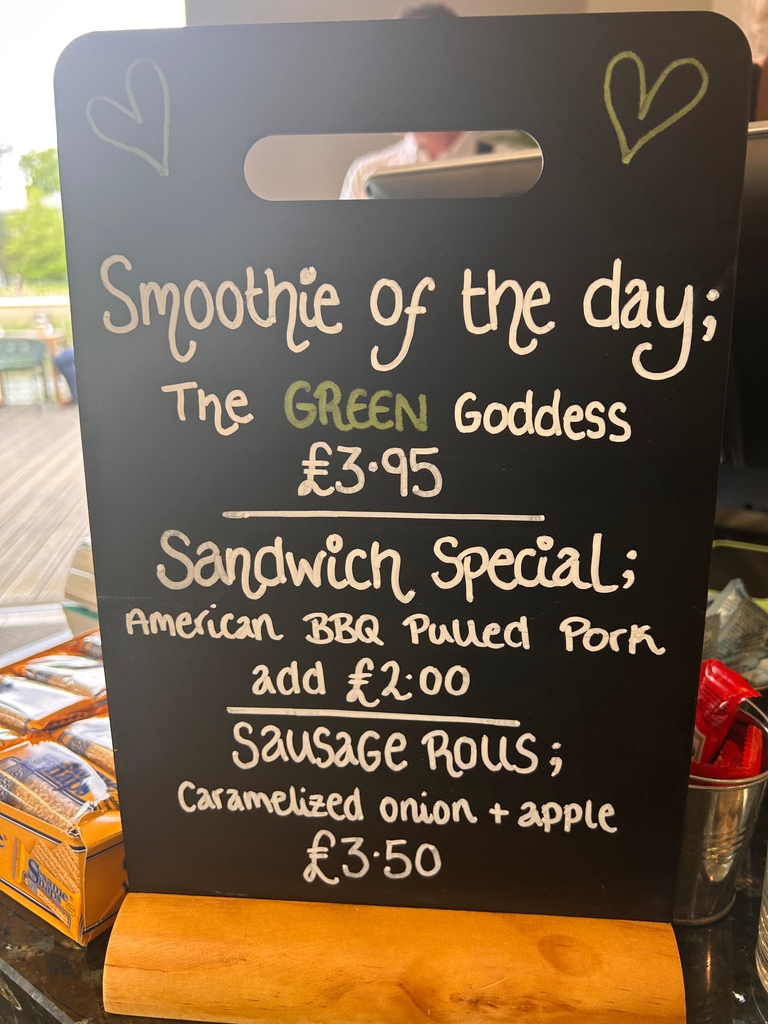 Smoothie of the day;
The GREEN Goddess
£3.95
Sandwich Special;
American BBQ Pulled Pork
add £2.00
Sausage Rolls;
Caramelized onion + apple
£3.50
Sesame
Snaps